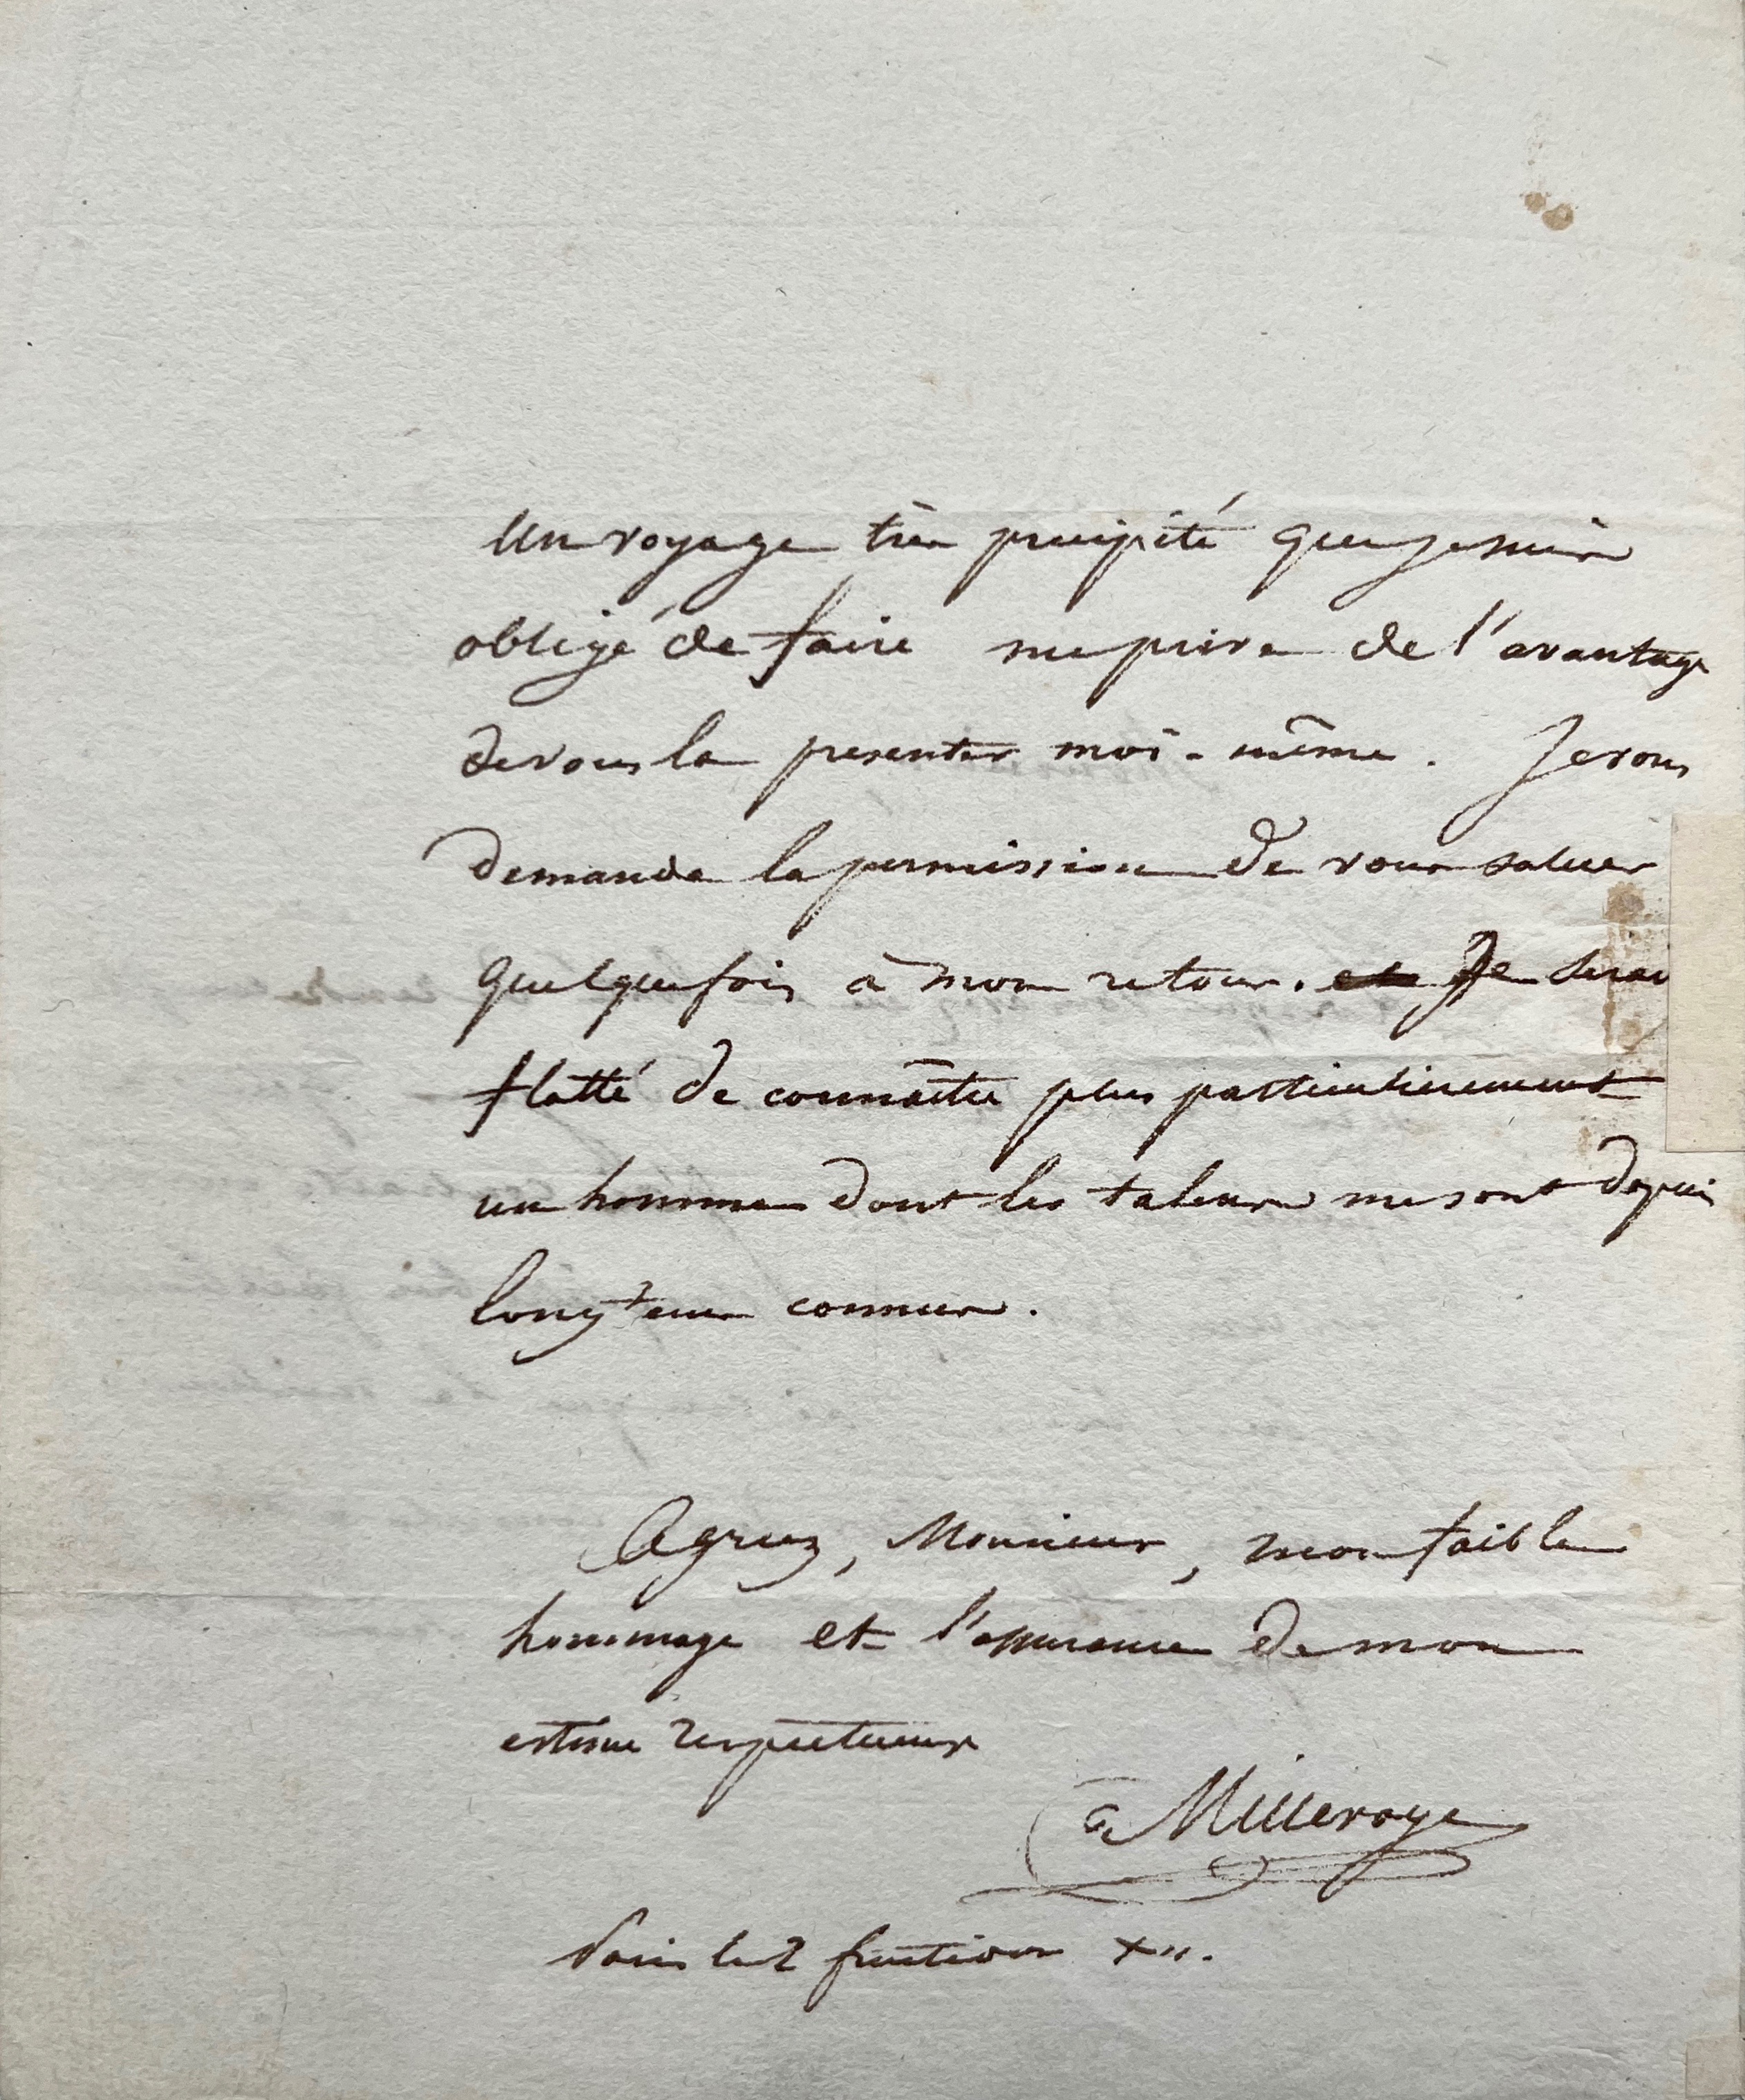 Un voyage très précipité que je suis
obligé de faire me prive de l'avantage
de vous la presenter moi-même. Je vous
demande la permission de vous saluer
quelquefois à mon retour. Je serai
flatté de connaître plus particulierement
un homme dont les talens me sont depuis
longtems connus.
Agréez, Monsieur, mon faible
hommage et l'assurance de mon
estime respectueuse
Millevoye
Paris le 2 fructidor XII.